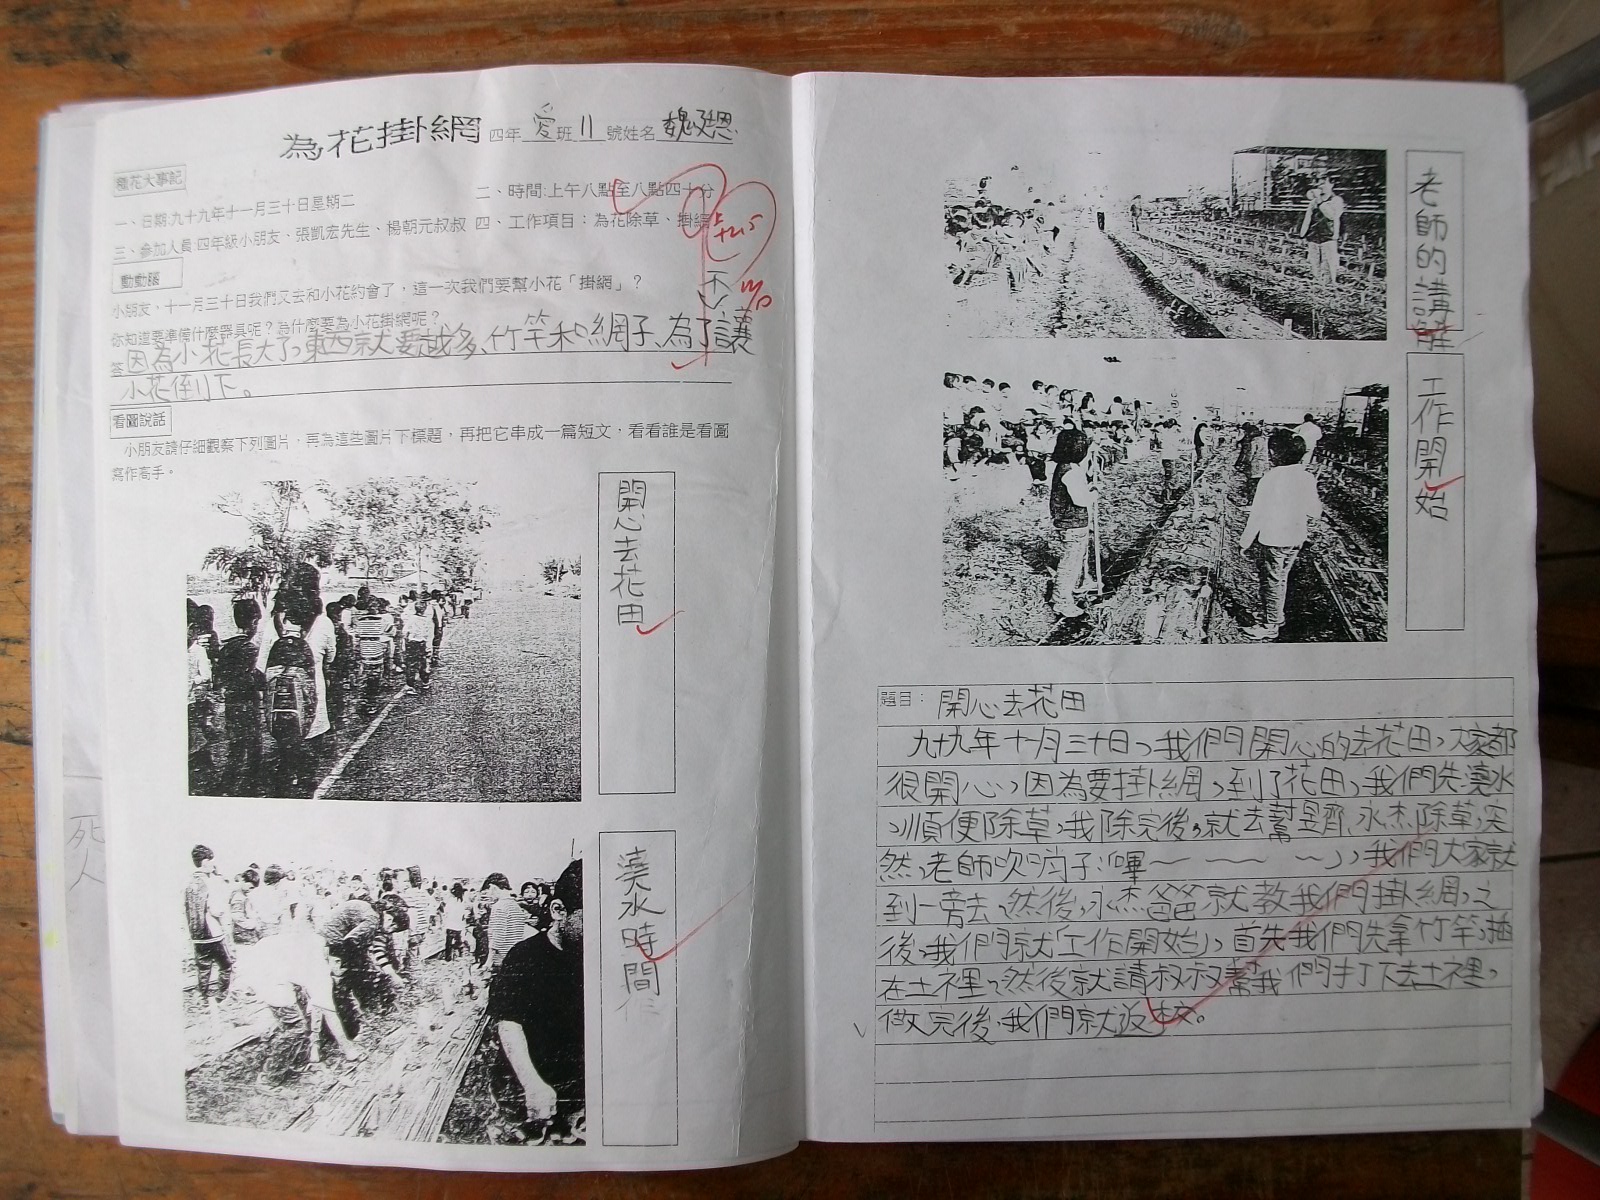 為花掛網 四年愛班11號姓名
種花大事記
一、日期:九十九年十一月三十日星期二 二、時間:上午八點至八點四十分
三、參加人員:四年級小朋友、張凱宏先生、楊朝元叔叔 四、工作項目:為花除草、掛網
動動腦
小朋友,十一月三十日我們又去和小花約會了,這一次我們要幫小花「掛網」?
你知道要準備什麼器具呢?為什麼要為小花掛網呢?
答因為小花長大了,東西就要越多、竹竿和網子、為了讓
小花倒下。
不
看圖說話
小朋友請仔細觀察下列圖片,再為這些圖片下標題,再把它串成一篇短文,看看誰是看圖
寫作高手。
開心去花田
澆水時間
死人
老師的講解
工作開始
題目: 開心去花田
九十九年十一月三十日,我們開心的去花田,大家都
很開心,因為要掛網,到了花田,我們先澆水
,順便除草,我除完後,就去幫昱齊、永杰除草,突
然,老師吹哨子:「嗶~ ~~ ~」,我們大家就
到一旁去,然後,永杰爸爸就教我們掛網,之
後,我們就「工作開始」,首先我們先拿竹竿,插
在土裡,然後就請叔叔幫我們打下去土裡,
做完後,我們就返校。